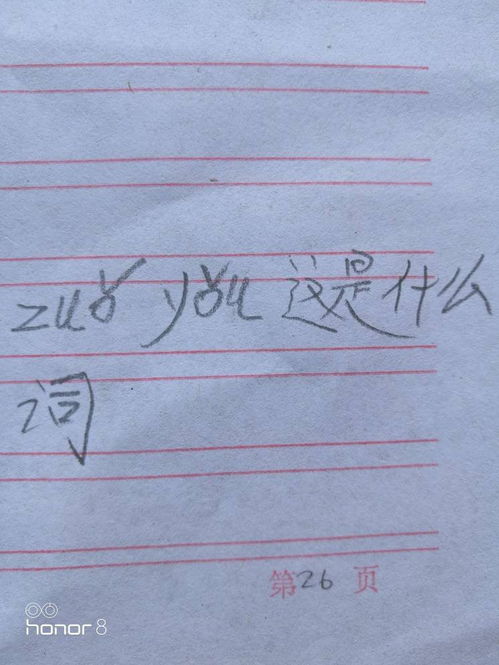 zuǒ yǒu 这是什么
词
第26页
honor 8